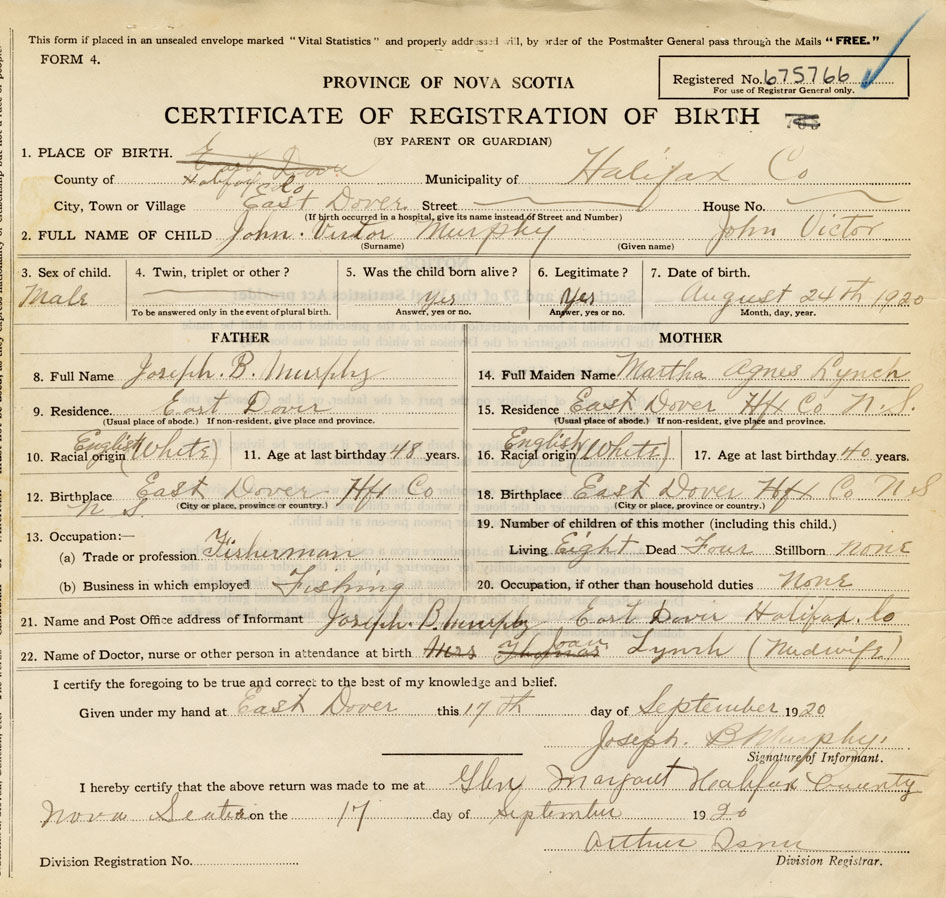 This form if placed in an unsealed envelope marked "Vital Statistics" and properly addressed will, by order of the Postmaster General pass through the Mails "FREE."
FORM 4.
PROVINCE OF NOVA SCOTIA
Registered No. 675766
For use of Registrar General only.
CERTIFICATE OF REGISTRATION OF BIRTH
(BY PARENT OR GUARDIAN)
1. PLACE OF BIRTH. East Dover
County of Halifax Co Municipality of Halifax Co
City, Town or Village East Dover Street House No.
(If birth occurred in a hospital, give its name instead of Street and Number)
2. FULL NAME OF CHILD John. Victor Murphy John Victor
(Surname) (Given name)
3. Sex of child. 4. Twin, triplet or other? 5. Was the child born alive? 6. Legitimate? 7. Date of birth.
Male Yes Yes August 24th 1920
To be answered only in the event of plural birth. Answer, yes or no. Answer, yes or no. Month, day, year.
FATHER MOTHER
8. Full Name Joseph. B. Murphy 14. Full Maiden Name Martha Agnes Lynch
9. Residence. East Dover 15. Residence East Dover Hfx Co N.S.
(Usual place of abode.) If non-resident, give place and province. (Usual place of abode.) If non-resident, give place and province.
10. Racial origin English (White) 11. Age at last birthday 48 years. 16. Racial origin English (White) 17. Age at last birthday 40 years.
12. Birthplace East Dover Hfx Co 18. Birthplace East Dover Hfx Co N S
N S (City or place, province or country.) (City or place, province or country.)
19. Number of children of this mother (including this child.)
13. Occupation:—
(a) Trade or profession Fisherman Living Eight Dead Four Stillborn none
(b) Business in which employed Fishing 20. Occupation, if other than household duties None
21. Name and Post Office address of Informant Joseph. B. Murphy East Dover Halifax. Co
22. Name of Doctor, nurse or other person in attendance at birth Mrs Thomas Lynch (Midwife)
I certify the foregoing to be true and correct to the best of my knowledge and belief.
Given under my hand at East Dover this 17th day of September 1920
Joseph. B Murphy.
Signature of Informant.
I hereby certify that the above return was made to me at Glen Margaret Halifax County
Nova Scotia on the 17 day of September 1920
Arthur
Division Registration No. Division Registrar.